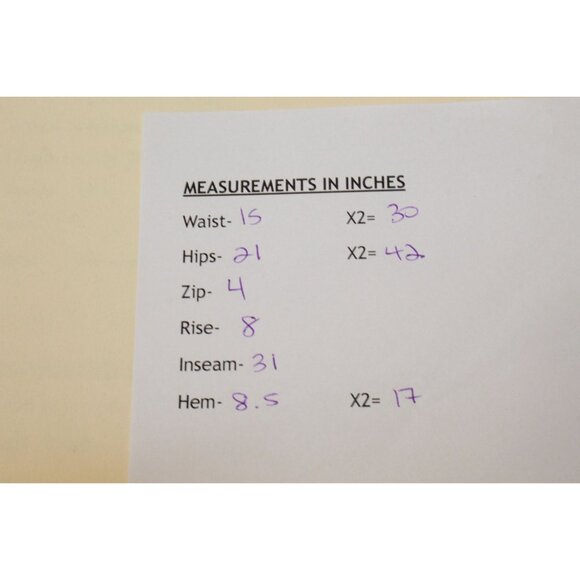 MEASUREMENTS IN INCHES
Waist- 15 X2= 30
Hips- 21 X2= 42
Zip- 4
Rise- 8
Inseam- 31
Hem- 8.5 X2= 17